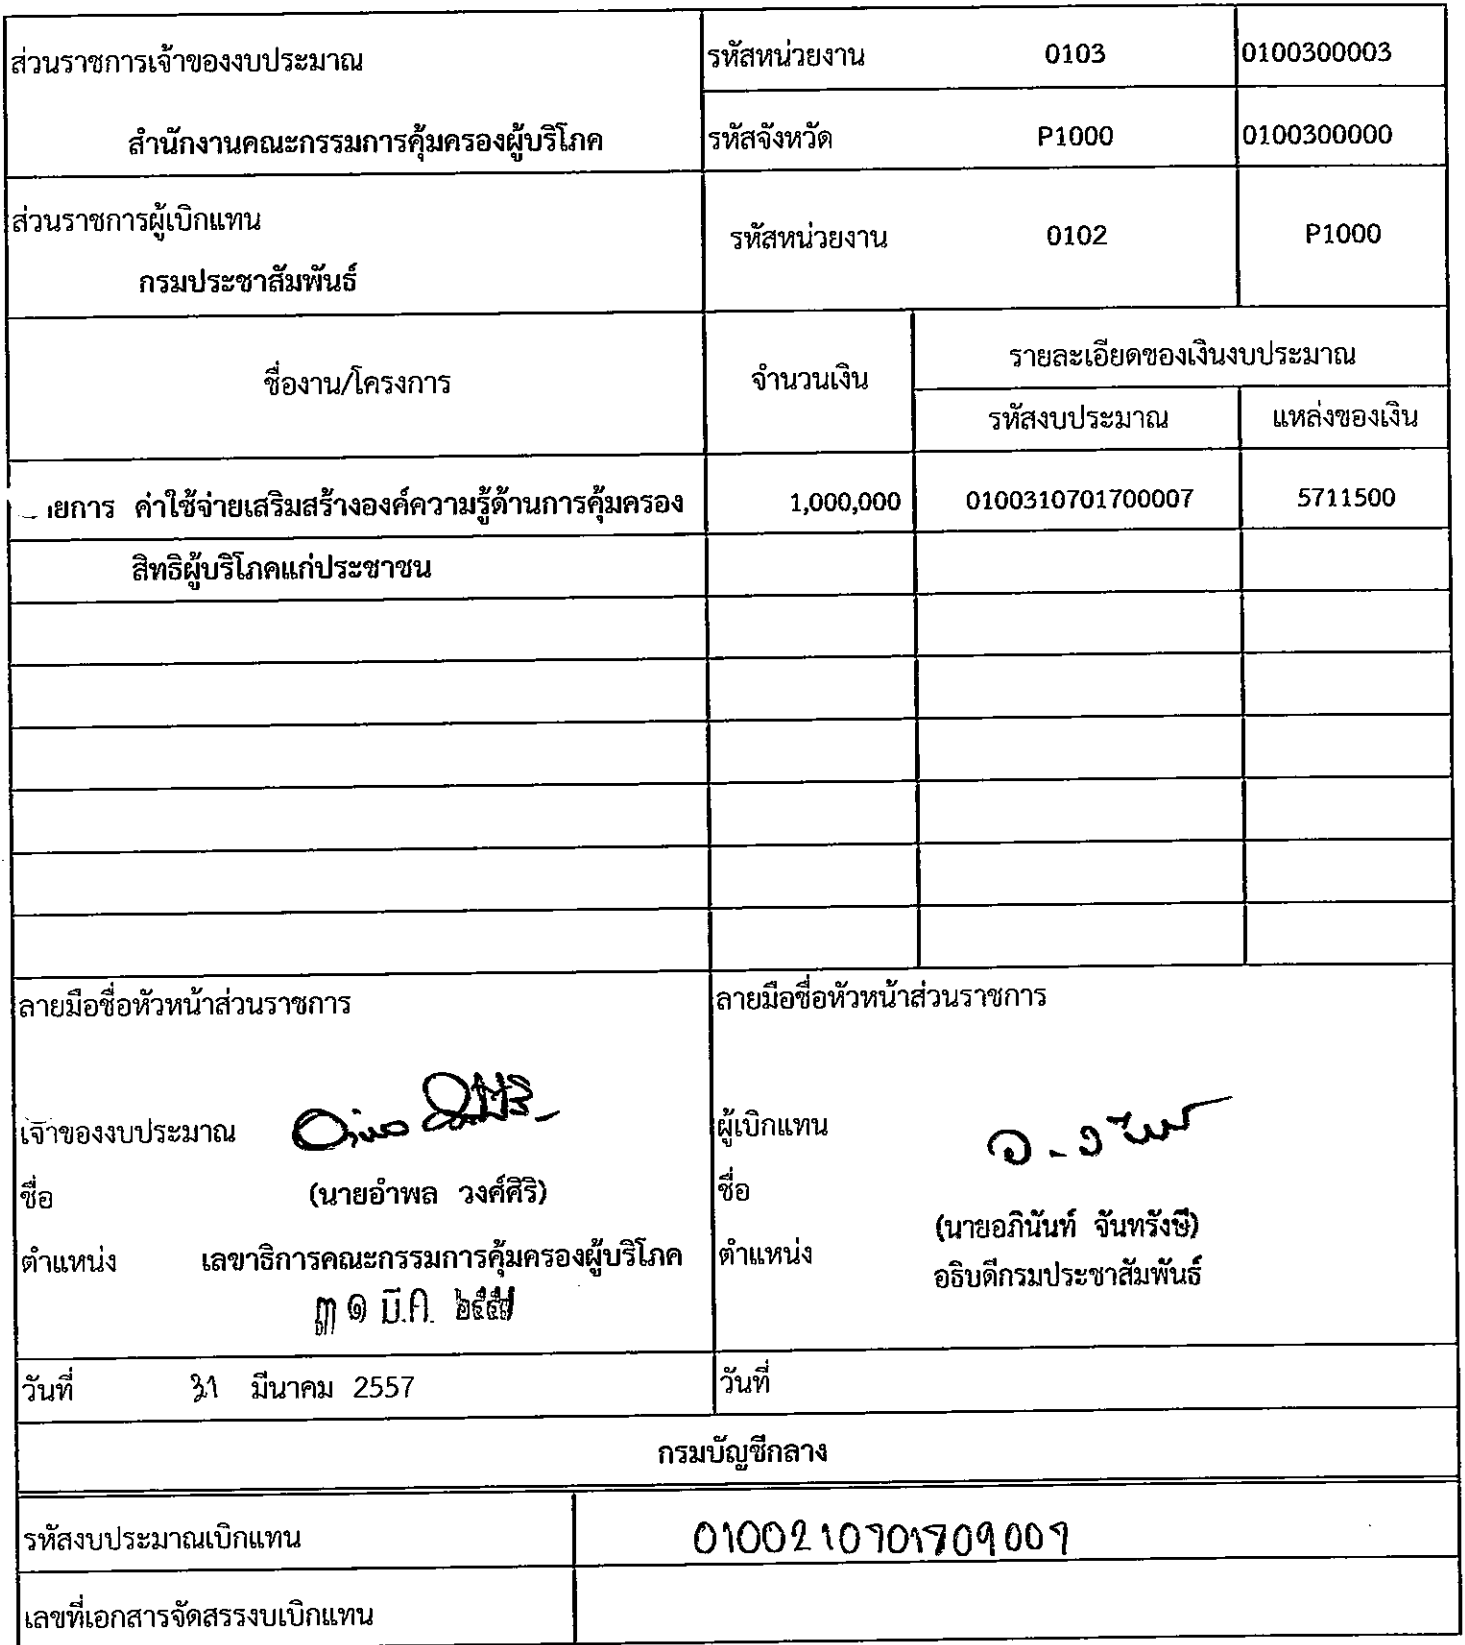 ส่วนราชการเจ้าของงบประมาณ รหัสหน่วยงาน 0103 0100300003
สำนักงานคณะกรรมการคุ้มครองผู้บริโภค รหัสจังหวัด P1000 0100300000
ส่วนราชการผู้เบิกแทน
รหัสหน่วยงาน 0102 P1000
กรมประชาสัมพันธ์
ชื่องาน/โครงการ จำนวนเงิน รายละเอียดของเงินงบประมาณ
รหัสงบประมาณ แหล่งของเงิน
ยการ ค่าใช้จ่ายเสริมสร้างองค์ความรู้ด้านการคุ้มครอง 1,000,000 0100310701700007 5711500
สิทธิผู้บริโภคแก่ประชาชน
ลายมือชื่อหัวหน้าส่วนราชการ
เจ้าของงบประมาณ
ชื่อ (นายอำพล วงศ์ศิริ)
ตำแหน่ง เลขาธิการคณะกรรมการคุ้มครองผู้บริโภค
๓๑ มี.ค. ๒๕๕๗
วันที่ 31 มีนาคม 2557
ลายมือชื่อหัวหน้าส่วนราชการ
ผู้เบิกแทน
ชื่อ
(นายอภินันท์ จันทรังษี)
ตำแหน่ง อธิบดีกรมประชาสัมพันธ์
วันที่
กรมบัญชีกลาง
รหัสงบประมาณเบิกแทน
เลขที่เอกสารจัดสรรงบเบิกแทน